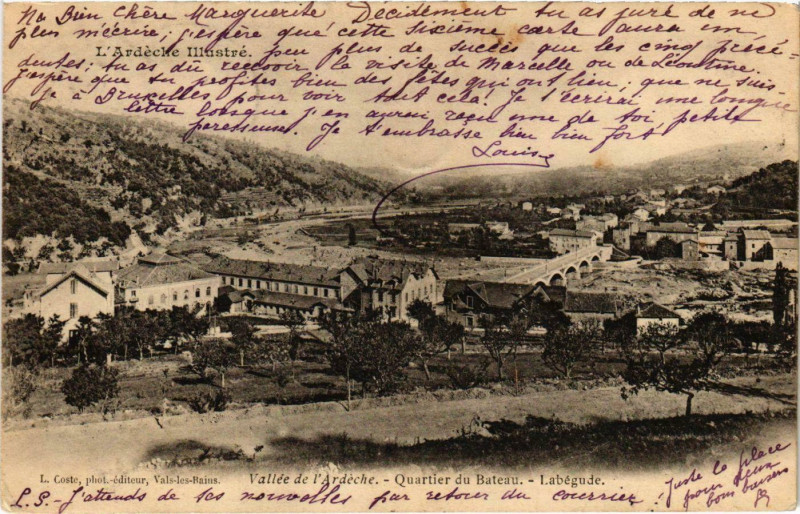 Ma Bien Chère Marguerite Décidément tu as juré de ne
plus m'écrire; j'espère que cette sixième carte aura un
L'Ardèche Illustré.
peu plus de succès que les cinq précé-
dentes; tu as dû recevoir la visite de Marcelle ou de Léontine.
J'espère que tu profites bien des fêtes qui ont lieu, que ne suis-
je à Bruxelles pour voir tout cela! Je t'écrirai une longue
lettre lorsque j'en aurai reçu une de toi, petite
paresseuse. Je t'embrasse bien bien fort,
Louise
L. Coste, phot.-éditeur, Vals-les-Bains.
Vallée de l'Ardèche. - Quartier du Bateau. - Labégude.
P.S. J'attends de tes nouvelles par retour du courrier.
Juste la place
pour deux
bons baisers